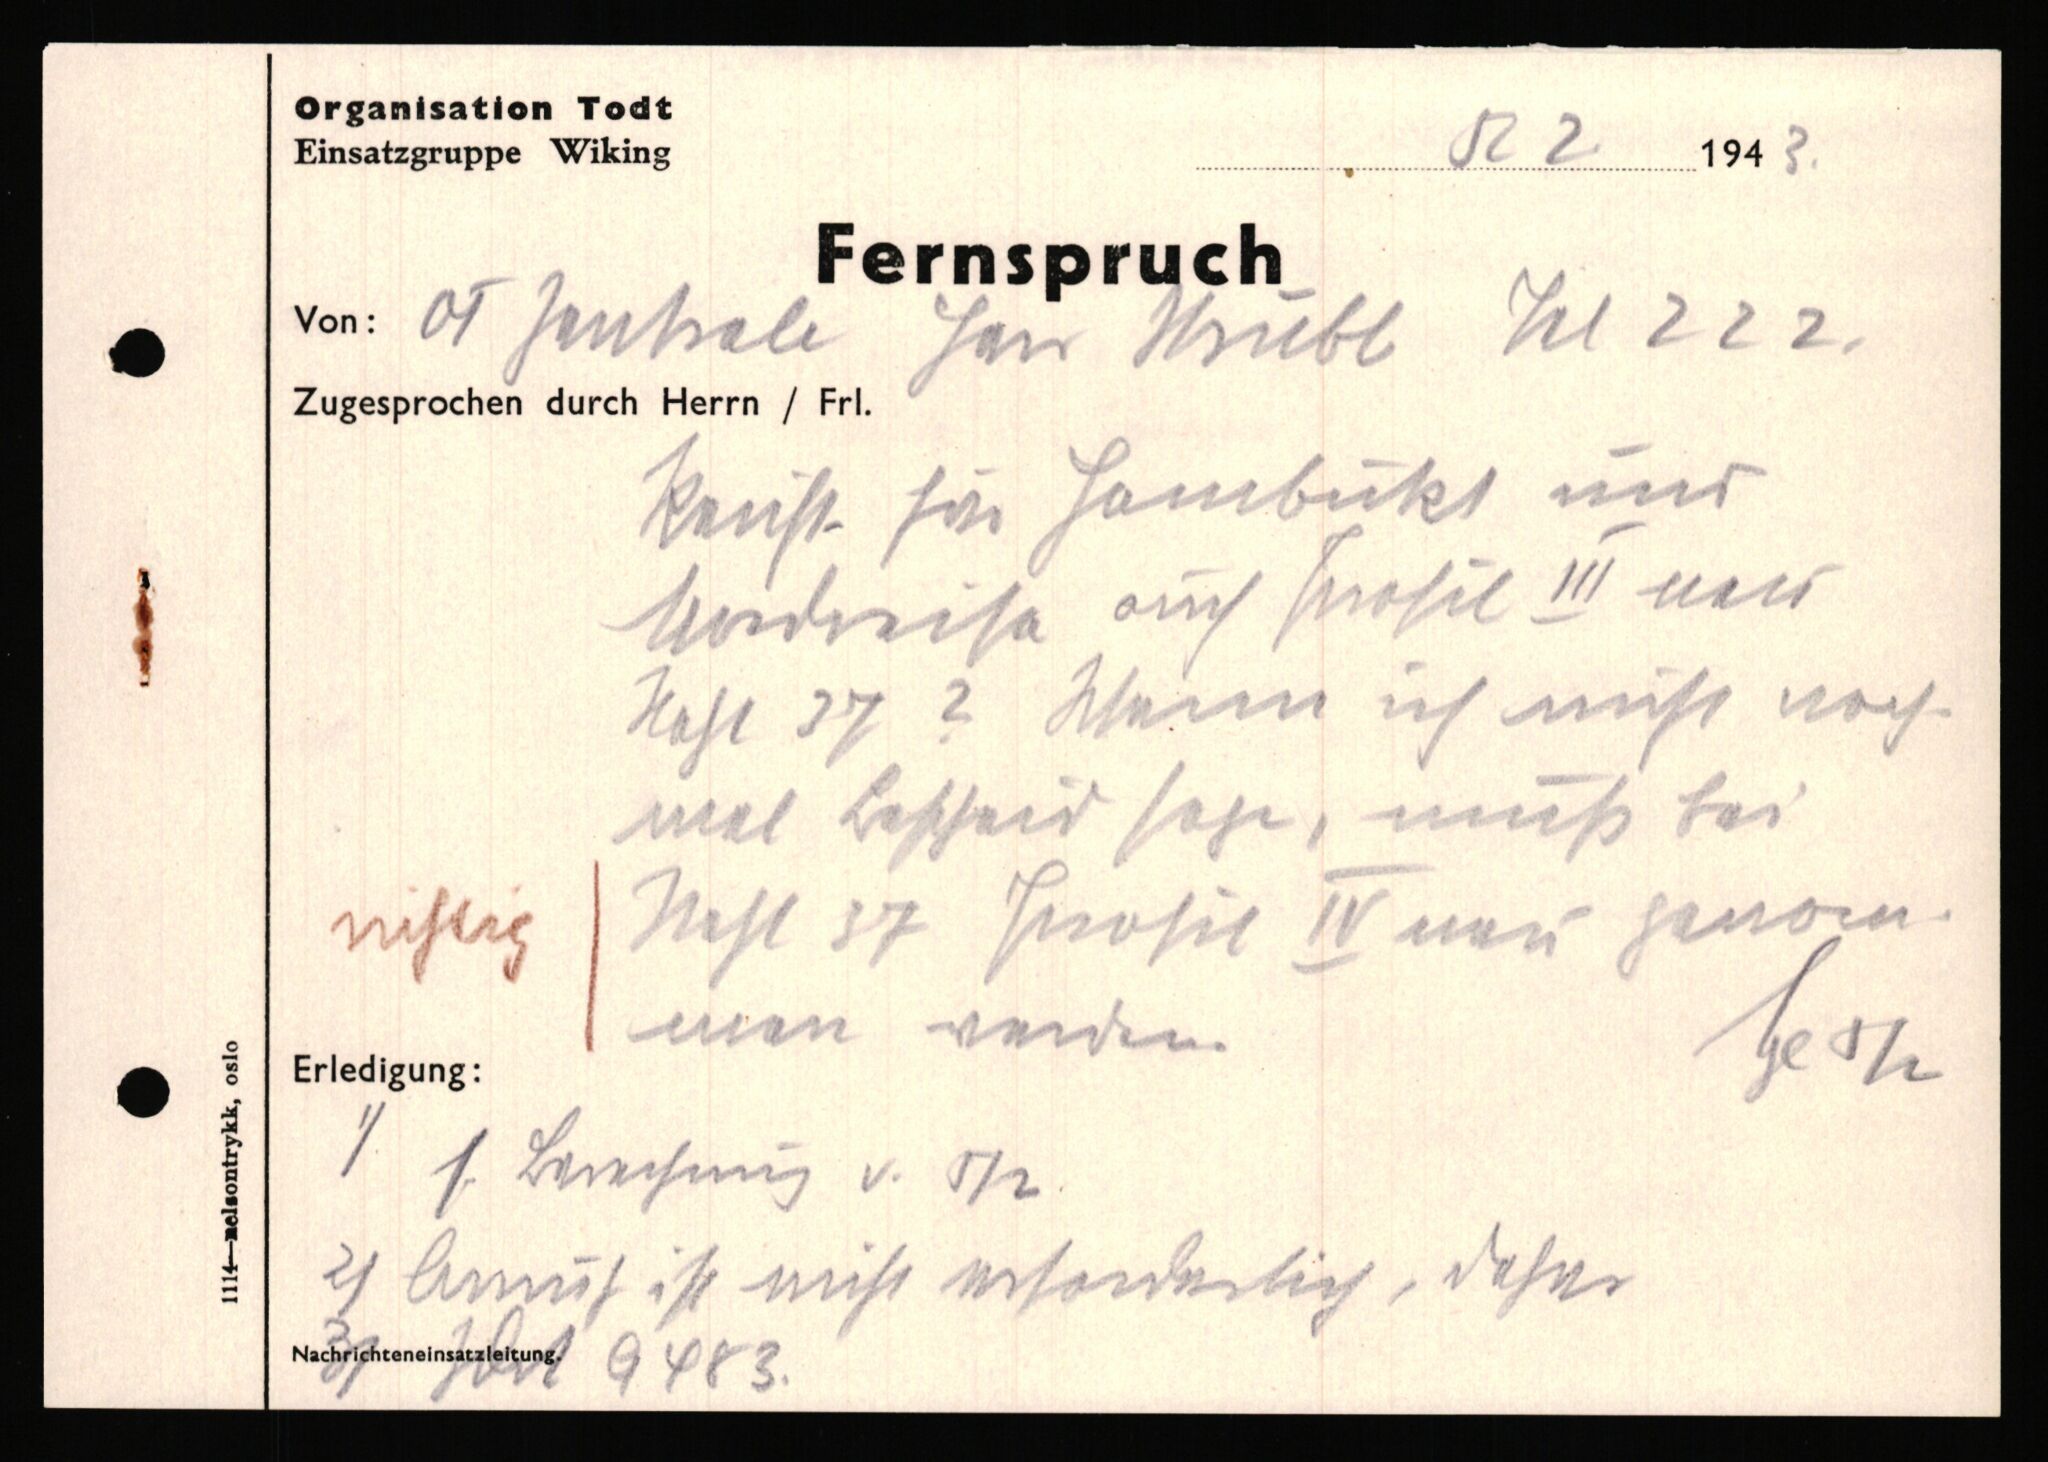 Organisation Todt
Einsatzgruppe Wiking
5/2 2. 1943.
Fernspruch
Von: OT Zentrale Herr Strubl Tel 222.
Zugesprochen durch Herrn / Frl.
Reicht für Hambukt und
Nordreisa auch Profil III neu
Heft 37? Wenn ich nicht noch-
mal Bescheid sage, muß bei
richtig
Heft 37 Profil IV neu genom-
men werden.
5/2
Erledigung:
1/ s. Berechnung v. 5/2
2/ Anruf ist nicht erforderlich, daher
3/ z. d. A. 9483.
Nachrichteneinsatzleitung.
1114—nelsontrykk, oslo